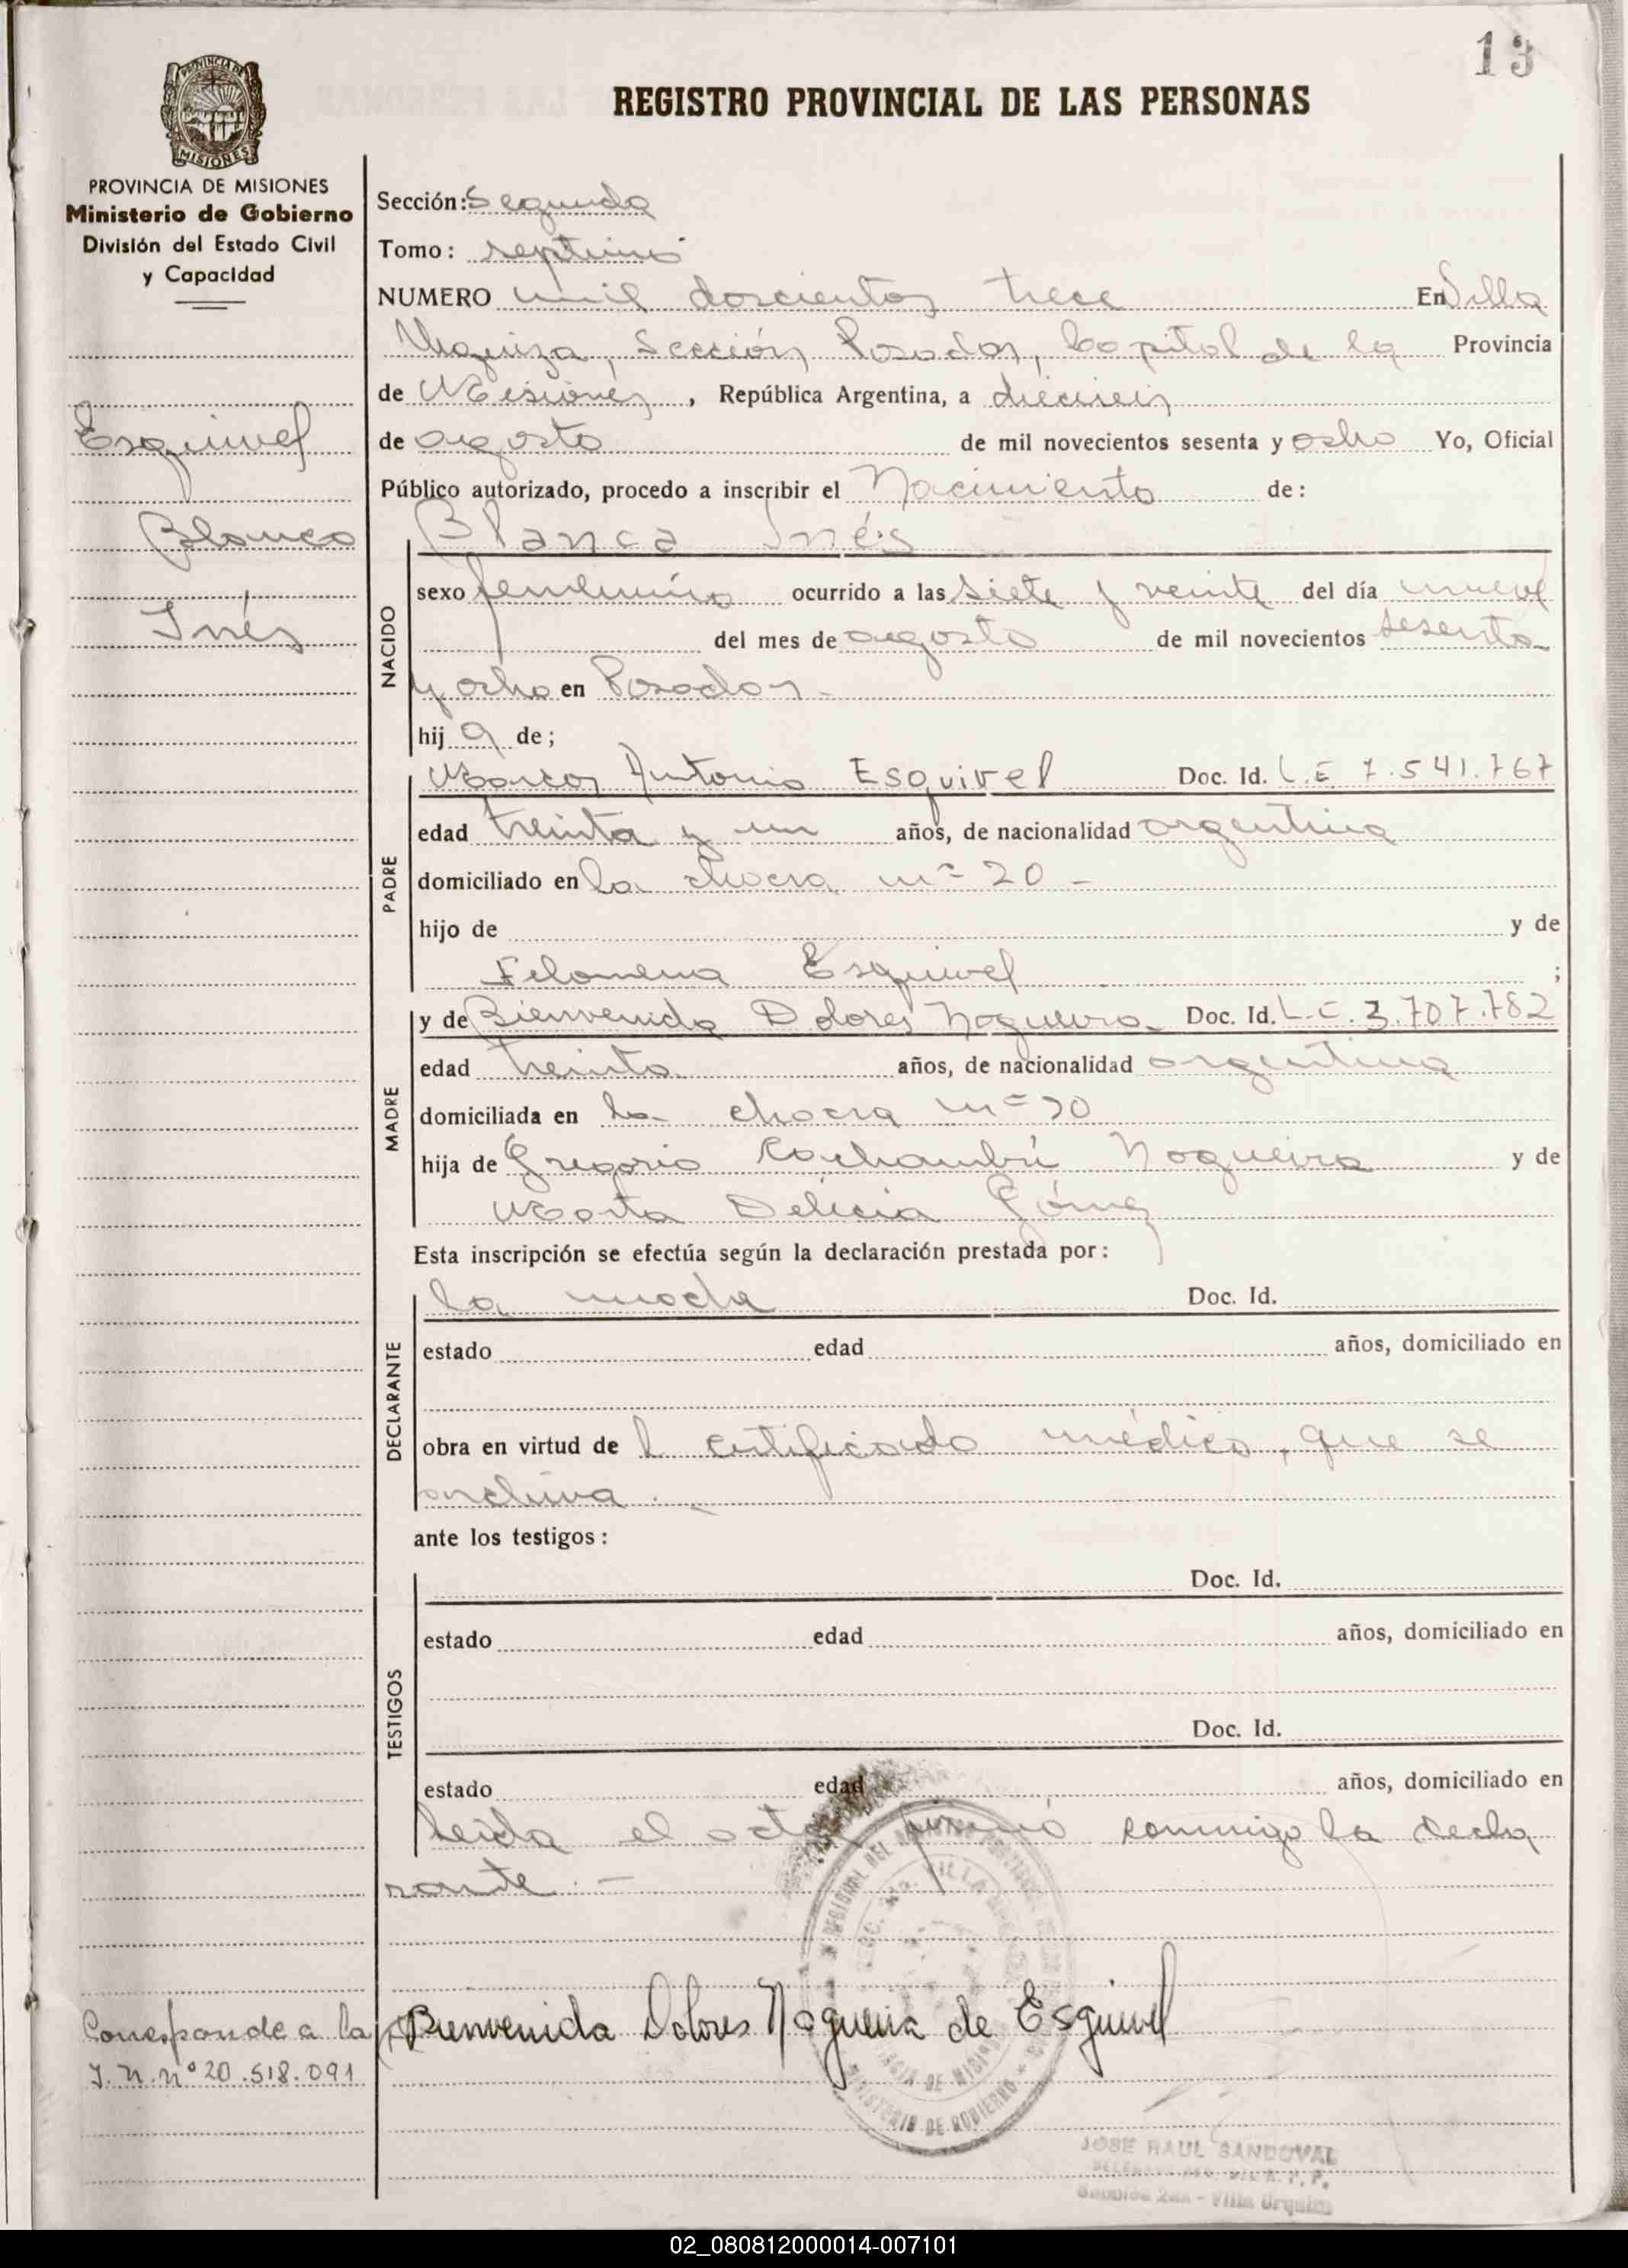 13
PROVINCIA DE
MISIONES
REGISTRO PROVINCIAL DE LAS PERSONAS
PROVINCIA DE MISIONES
Ministerio de Gobierno
División del Estado Civil
y Capacidad
Esquivel
Blanca
Inés
Corresponde a la
I.N. nº 20.518.091
Sección: Segunda
Tomo: septimo
NUMERO mil doscientos trece En Villa
Urquiza, Sección Posadas, Capital de la Provincia
de Misiones, República Argentina, a dieciseis
de agosto de mil novecientos sesenta y ocho Yo, Oficial
Público autorizado, procedo a inscribir el Nacimiento de:
Blanca Inés
NACIDO
sexo femenino ocurrido a las siete y veinte del día nueve
del mes de agosto de mil novecientos sesenta
y ocho en Posadas.
hij a de;
PADRE
Marcos Antonio Esquivel Doc. Id. L.E 7.541.767
edad treinta y un años, de nacionalidad argentina
domiciliado en la chacra nº 20 -
hijo de y de
Filomena Esquivel ;
MADRE
y de Bienvenida Dolores Nogueira Doc. Id. L.C. 3.707.782
edad treinta años, de nacionalidad argentina
domiciliada en la chacra nº 20
hija de Gregorio Nogueira y de
Marta Delicia Gómez
Esta inscripción se efectúa según la declaración prestada por:
DECLARANTE
la madre Doc. Id.
estado edad años, domiciliado en
obra en virtud de l certificado médico, que se
archiva.
ante los testigos:
TESTIGOS
Doc. Id.
estado edad años, domiciliado en
Doc. Id.
estado edad años, domiciliado en
Leída el acta, firmó conmigo la decla
rante. -
Bienvenida Dolores Nogueira de Esquivel
MINISTERIO DE GOBIERNO
JOSE RAUL SANDOVAL
Sección 2da - Villa Urquiza
02_080812000014-007101